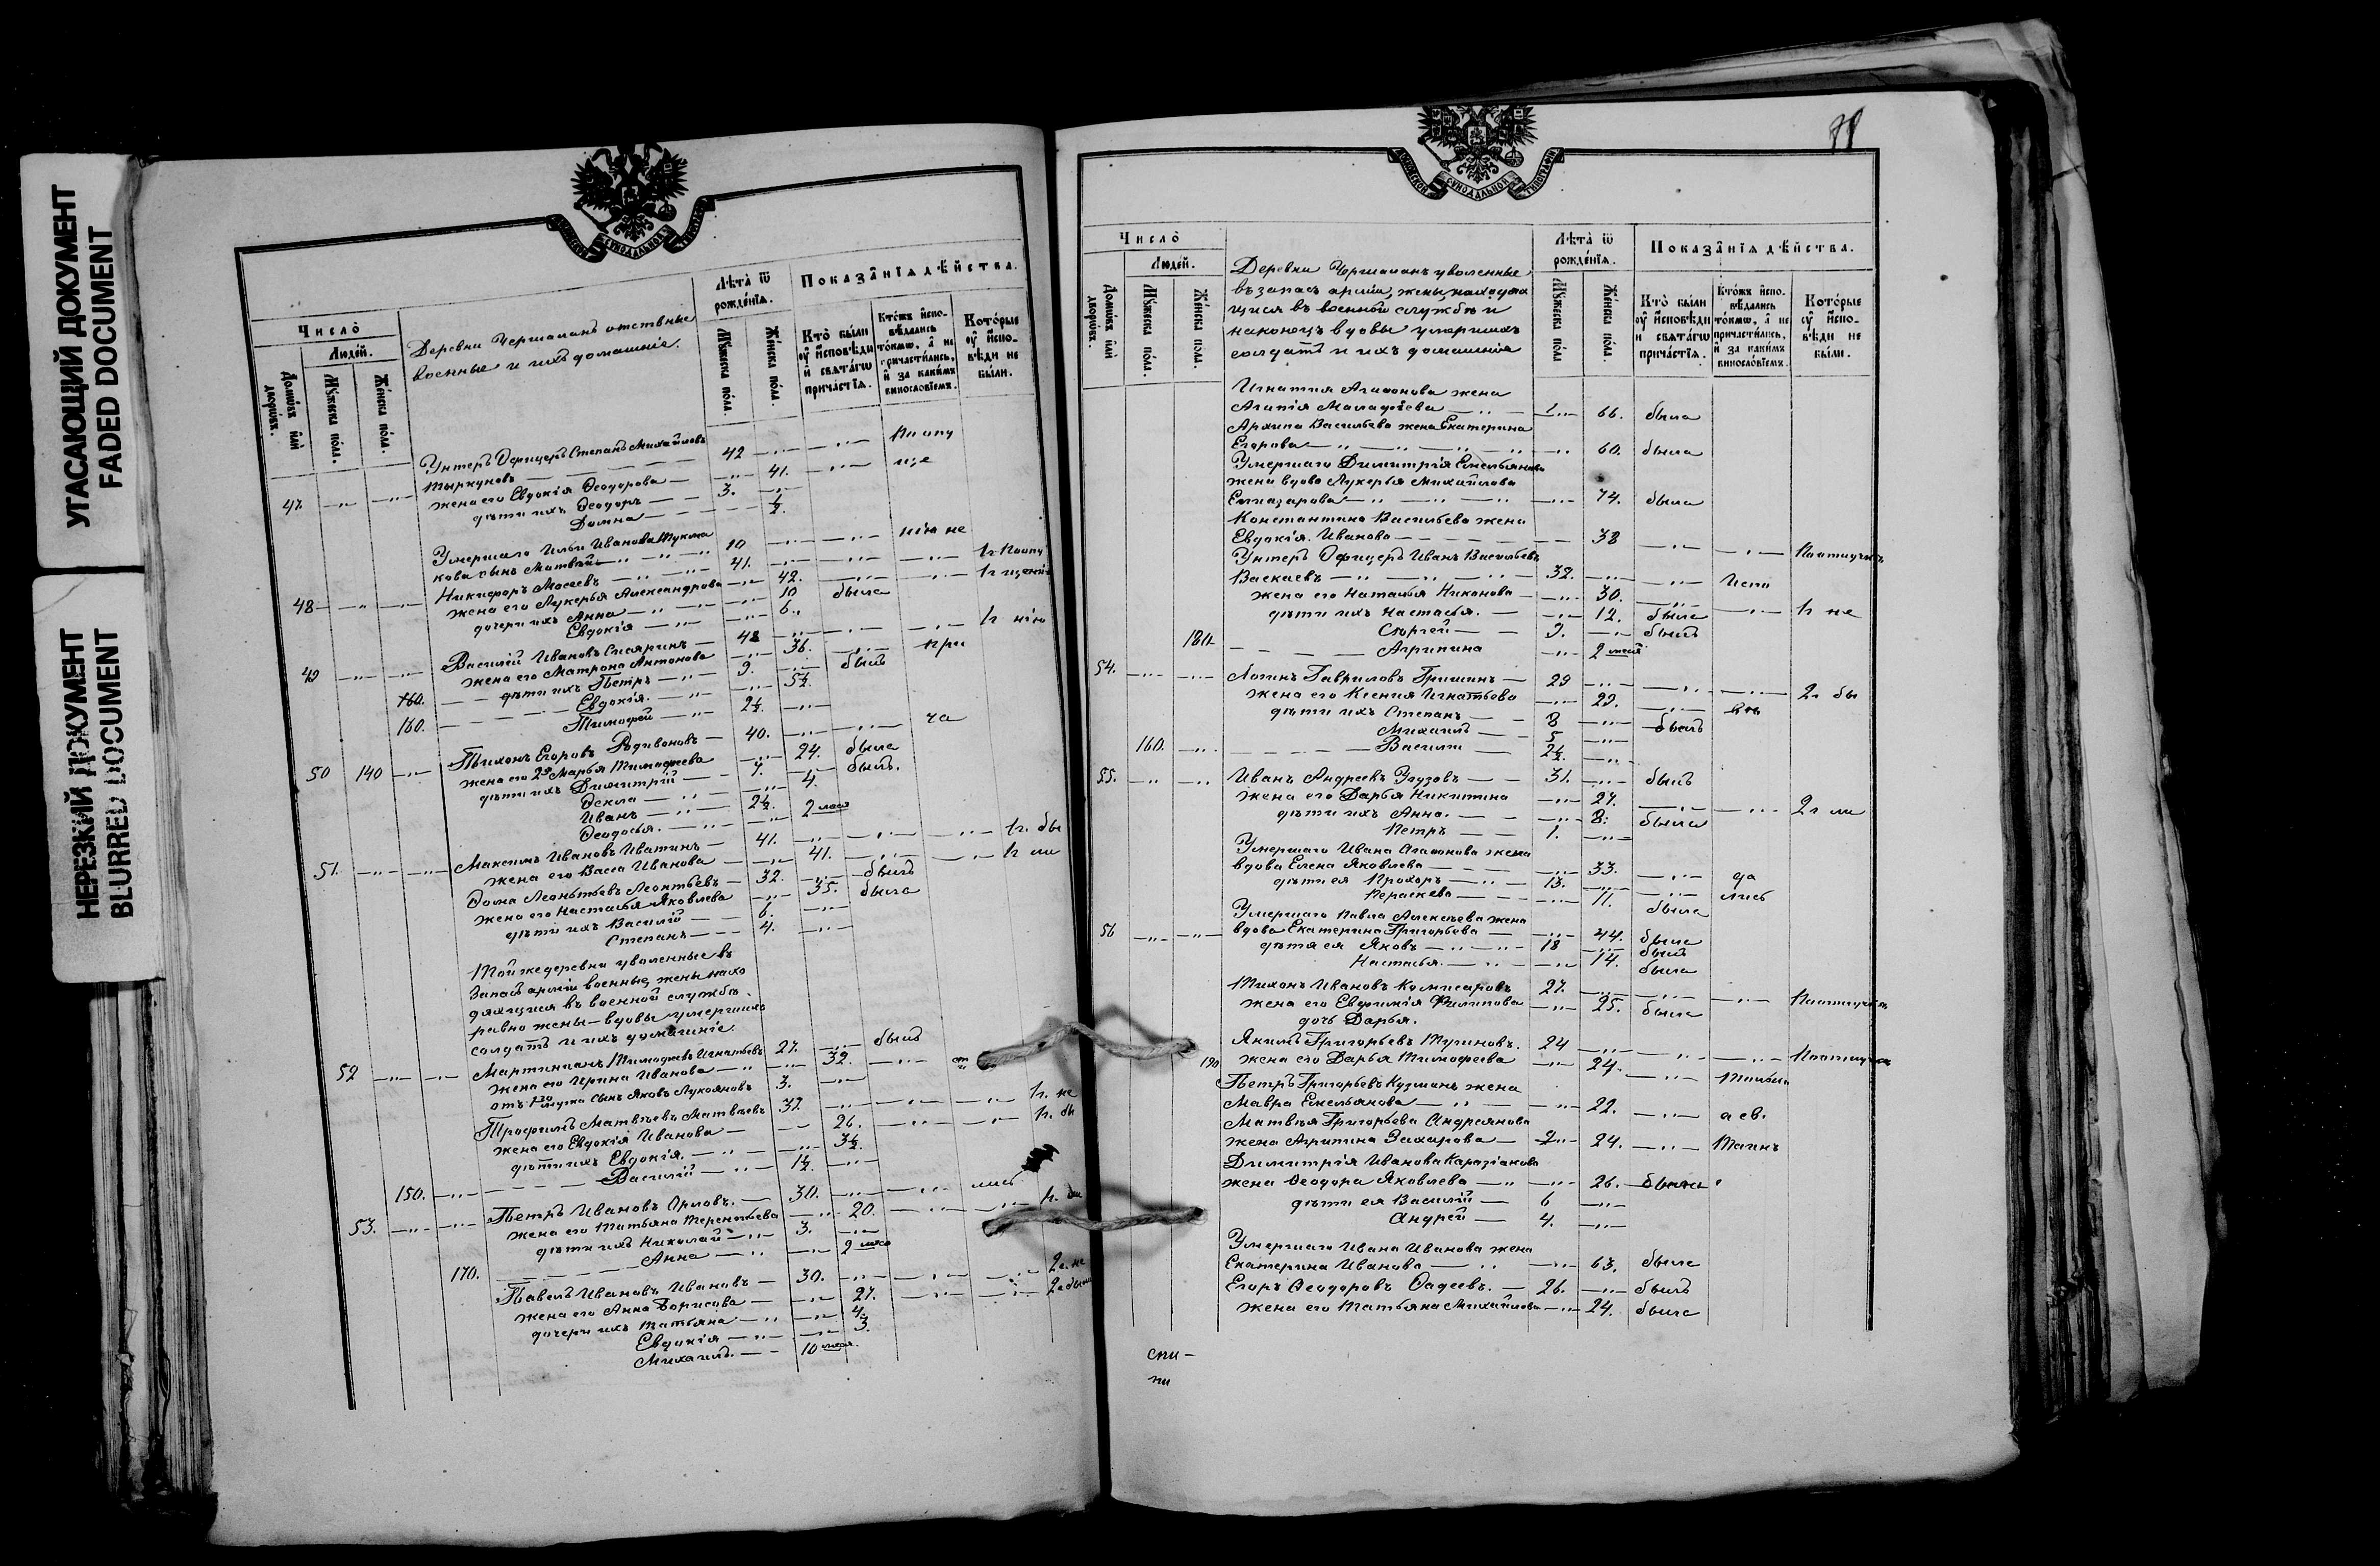 УГАСАЮЩИЙ ДОКУМЕНТ
FADED DOCUMENT
НЕРЕЗКИЙ ДОКУМЕНТ
BLURRED DOCUMENT
МОСКОВСКОЙ СѴНОДАЛЬНОЙ ТИПОГРАФІИ
Число̀
Людей.
Домѡвъ или дворѡвъ.
Мꙋжеска пола.
Женска пола.
Деревни Чермаманъ отствные
военные и ихъ домашніе.
Лѣта̀ ѿ рожде́нїѧ.
Мꙋжеска пола.
Женска пола.
Показа̑нїѧ дѣ́йства.
Кто̀ бы́ли оу҆ и҆сповѣди и҆ свѧта́гѡ прича́стїѧ.
Кто́жъ и҆спо- вѣ́дались то́кмѡ, а҆ не причасти́лись, и҆ за каки́мъ винослов́їемъ.
Кото́рые оу҆ и҆спо- вѣди не бы́ли.
Унтеръ Офицеръ Степанъ Михайловъ
42 По опу
47. жена его Евдокія Ѳеодорова 41. ще
дѣти ихъ Ѳеодоръ 3.
Домна ½.
Умершаго Ильи Иванова
кова сынъ Матвѣй 10 нію не
48 Никифоръ Мосеевъ 41. 1 г По опу
жена его Лукерья Александрова 42. 1 г
дочери ихъ Анна 10 была
Евдокія 6.
49 Василій Ивановъ 48 1 г нію
жена его Матрона Антонова 36. при
160. дѣти ихъ Петръ 9. былъ
Евдокія. 5½
160. Тимофей 2½.
50 140 Тихонъ Егоровъ Родивоновъ 40. ча
жена его 2я Марья Тимофеева 24. была
дѣти ихъ Димитрій 7. былъ.
Ѳекла 4.
Иванъ 2½.
Ѳеодосья. 2 мѣся
51. Максимъ Ивановъ Иватинъ 41. 1 г. бы
жена его Васса Иванова 41. 1 г ли
Ѳома Леонтьевъ Леонтьевъ 32. былъ
жена его Настасья Яковлева 35. была
дѣти ихъ Василій 6.
Степанъ 4.
Той же деревни уволенные въ
Запасъ арміи военные, жены нахо
дящіяся въ военной службѣ
равно жены-вдовы умершихъ
солдатъ и ихъ домашніе.
52 Мартиніанъ Тимофеевъ Игнатьевъ 27. былъ
жена его Ирина Иванова 32.
отъ 1го мужа сынъ Яковъ Лукояновъ 3.
Трофимъ Матвѣевъ Матвѣевъ 32. 1 г. не
жена его Евдокія Иванова 26. 1 г. бы
дѣти ихъ Евдокія. 3½.
150. Василій 1½.
53. Петръ Ивановъ Орловъ. 30. лись
жена его Татьяна Терентьева 20. 1 г.
дѣти ихъ Николай 3.
170. Анна 2
Павелъ Ивановъ Ивановъ 30. 2 г. не
жена его Анна Борисова 27. 2 г бы
дочери ихъ Татьяна 4.
Евдокія 3.
Михаилъ. 10
МОСКОВСКОЙ СѴНОДАЛЬНОЙ ТИПОГРАФІИ
Число̀
Людей.
Домѡвъ или дворѡвъ.
Мꙋжеска пола.
Женска пола.
Деревни Чермаманъ уволенные
въ запасъ арміи, жены, находя
щіяся въ военной службѣ и
наконецъ вдовы умершихъ
солдатъ и ихъ домашніе
Лѣта̀ ѿ рожде́нїѧ.
Мꙋжеска пола
Женска пола.
Показа̑нїѧ дѣ́йства.
Кто̀ бы́ли оу҆ и҆сповѣди и҆ свѧта́гѡ прича́стїѧ.
Кто́жъ и҆спо- вѣ́дались то́кмѡ, а҆ не причасти́лись, и҆ за каки́мъ винослов́їемъ.
Кото́рые оу҆ и҆спо- вѣди не бы́ли.
Игнатія Агафонова жена
Агапія Малафіева 66. была
Архипа Васильева жена Екатерина
Егорова 60. была
Умершаго Димитрія Емельянова
жена вдова Лукерья Михайлова
74. была
Константина Васильева жена
Евдокія Иванова 38
Унтеръ Офицеръ Иванъ Васильевъ
Васкаевъ 32.
жена его Наталья Никонова 30.
дѣти ихъ Настасья. 12. была 1 г не
Сергей 9. былъ
180. Агрипина 2
54. Логинъ Гавриловъ Гришинъ 29 2 г бы
жена его Ксенія Игнатьева 29.
дѣти ихъ Степанъ 8 былъ
Михаилъ 5
160. Василій 2½
55. Иванъ Андреевъ 31. былъ
жена его Дарья Никитина 27. 2 г ли
дѣти ихъ Анна. 8. была
Петръ 1.
Умершаго Ивана Агафонова жена
вдова Елена Яковлева 33. да
дѣти ея Прохоръ 13. лись
Пераскева 11. была
Умершаго Павла Алексѣева жена
56 вдова Екатерина Григорьева 44. была
дѣти ея Яковъ 18 былъ
Настасья. 14. была
Тихонъ Ивановъ Комисаровъ 27.
жена его Евфимія Филипова 25. была
дочь Дарья.
Якимъ Григорьевъ 24
190 жена его Дарья Тимофеева 24.
Петръ Григорьевъ Кузминъ жена
Мавра Емельянова 22. а св.
Матвѣя Григорьева Андреянова
жена Агрипина Захарова 24. Таинъ
Димитрія Иванова
жена Ѳеодора Яковлева 26. была
дѣти ея Василій 6
Андрей 4.
Умершаго Ивана Иванова жена
Екатерина Иванова 63. была
Егоръ Ѳеодоровъ Ѳадеевъ. 26. былъ
жена его Татьяна Михайлова 24. была